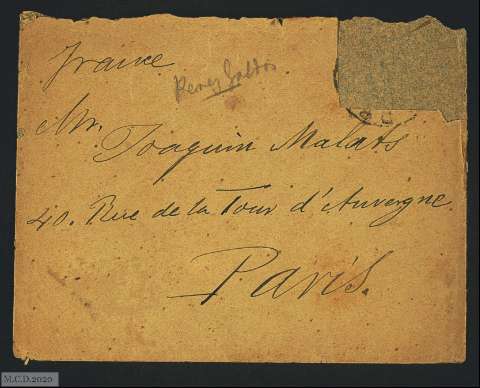 France
Perez Galdós
Mr. Joaquin Malats
40. Rue de la Tour d'Auvergne
París.
M.C.D.2020